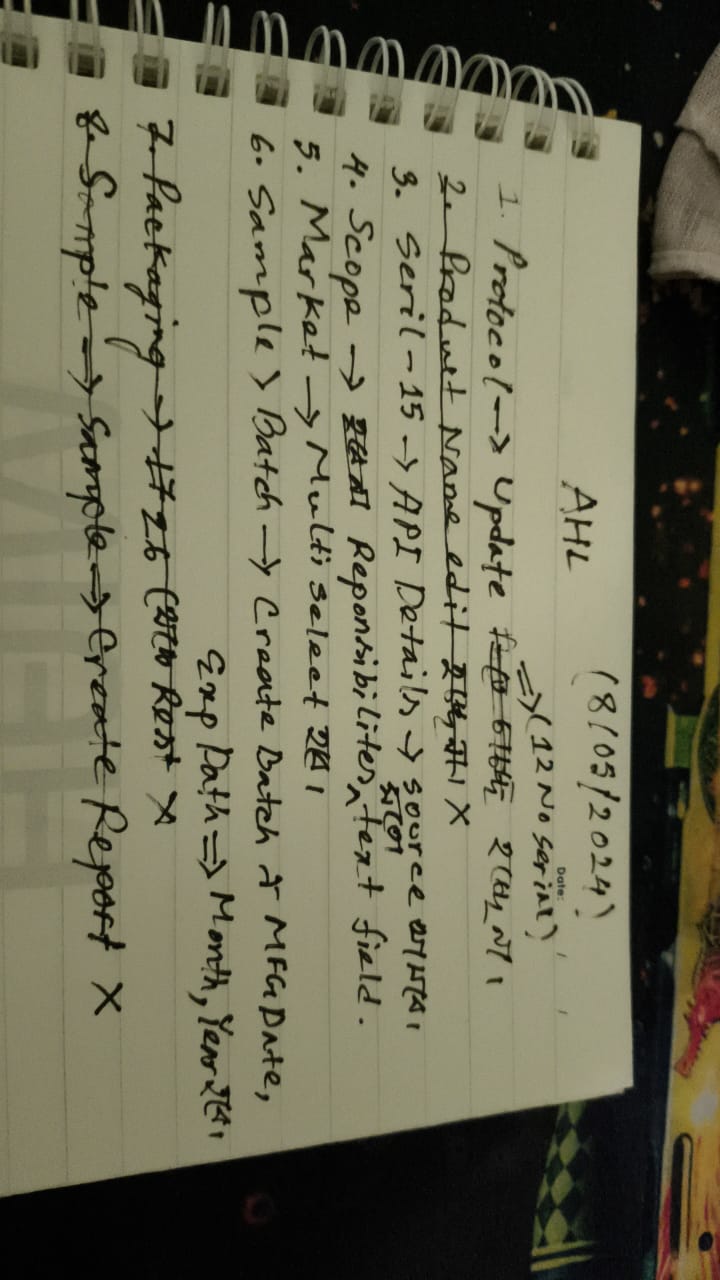 AHL (8/05/2024)
Date:
⇒ (12 No serial)
1. Protocol → Update হচ্ছে না।
2. Product Name edit হচ্ছে না। X
3. Seril-15 → API Details → source আসবে।
4. Scope → Reponsibilites, text field.
5. Market → Multi select হবে।
6. Sample > Batch → Create Batch MFG Date,
Exp Dath ⇒ Month, Year হবে।
7. Packaging → Rest X
8. Sample ⇒ Sample ⇒ Create Report X